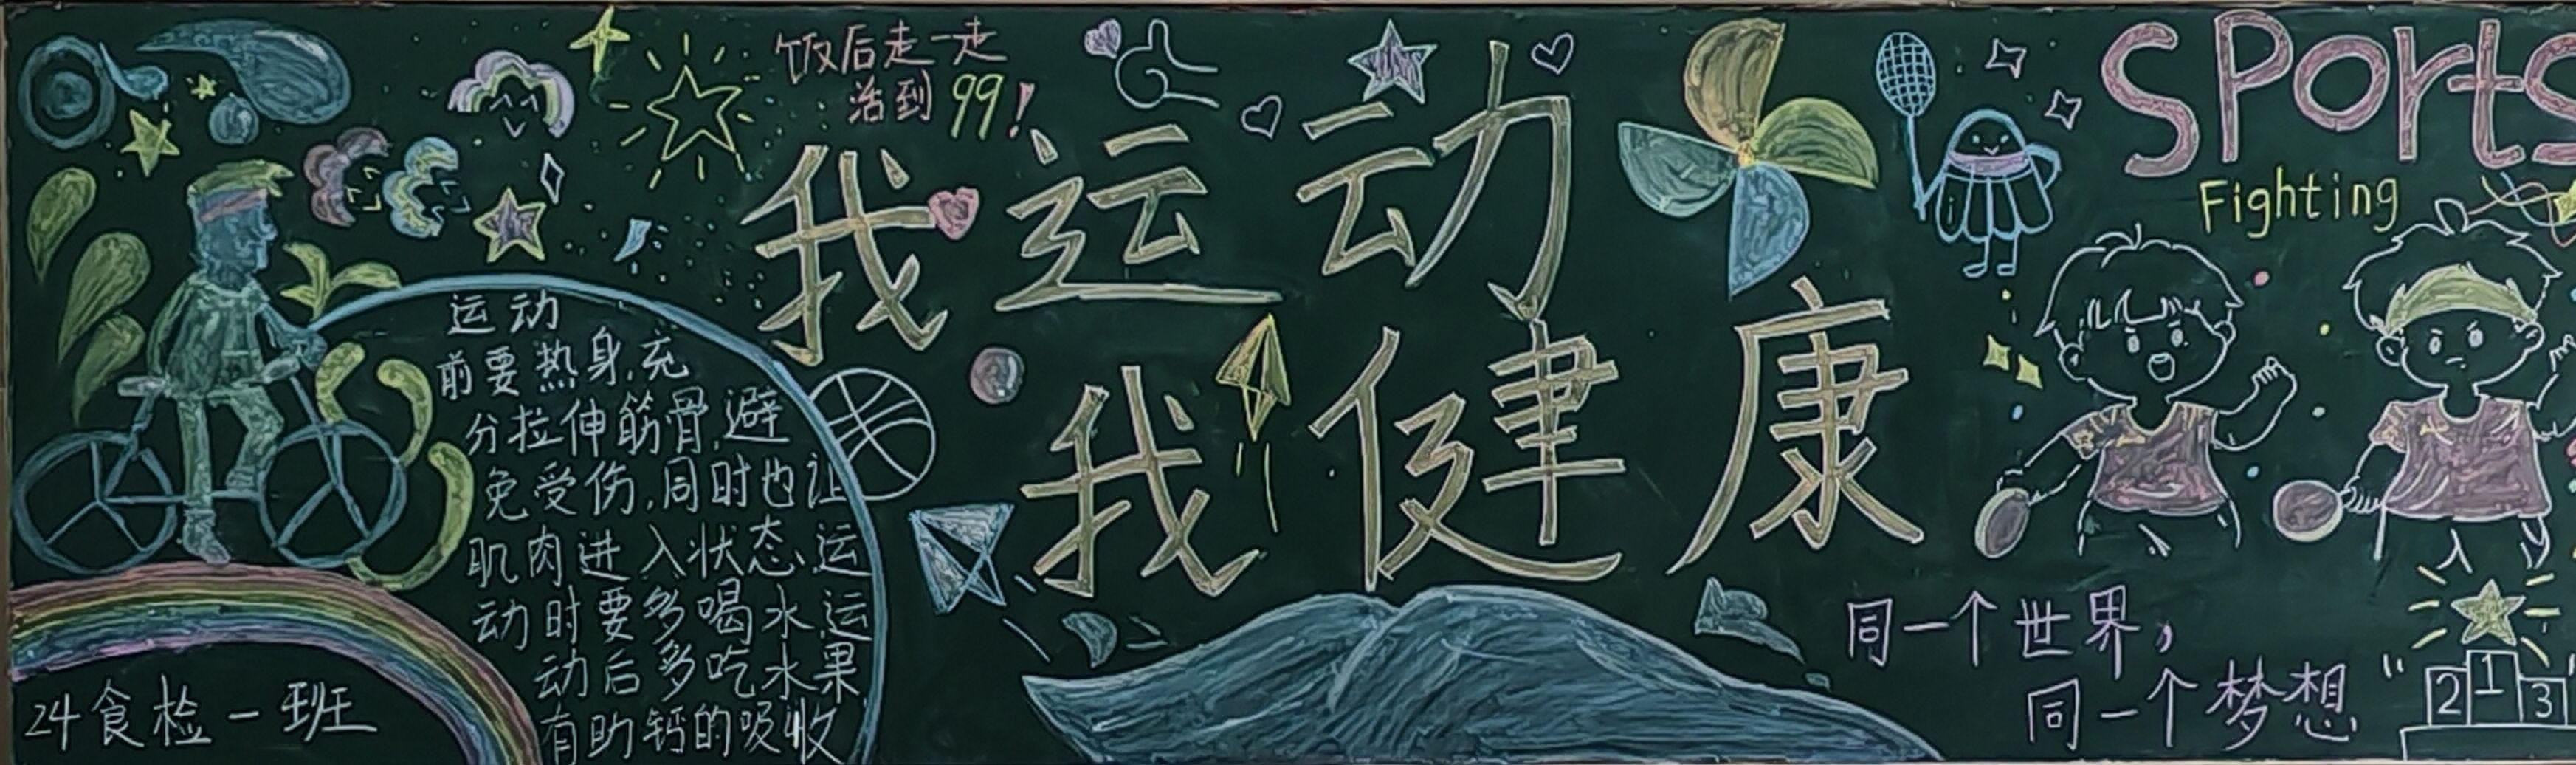 饭后走一走
活到99!
我运动
我健康
运动
前要热身,充
分拉伸筋骨,避
免受伤,同时也让
肌肉进入状态,运
动时要多喝水,运
动后多吃水果
有助钙的吸收
24食检一班
Sports
Fighting
同一个世界,
同一个梦想
2 1 3